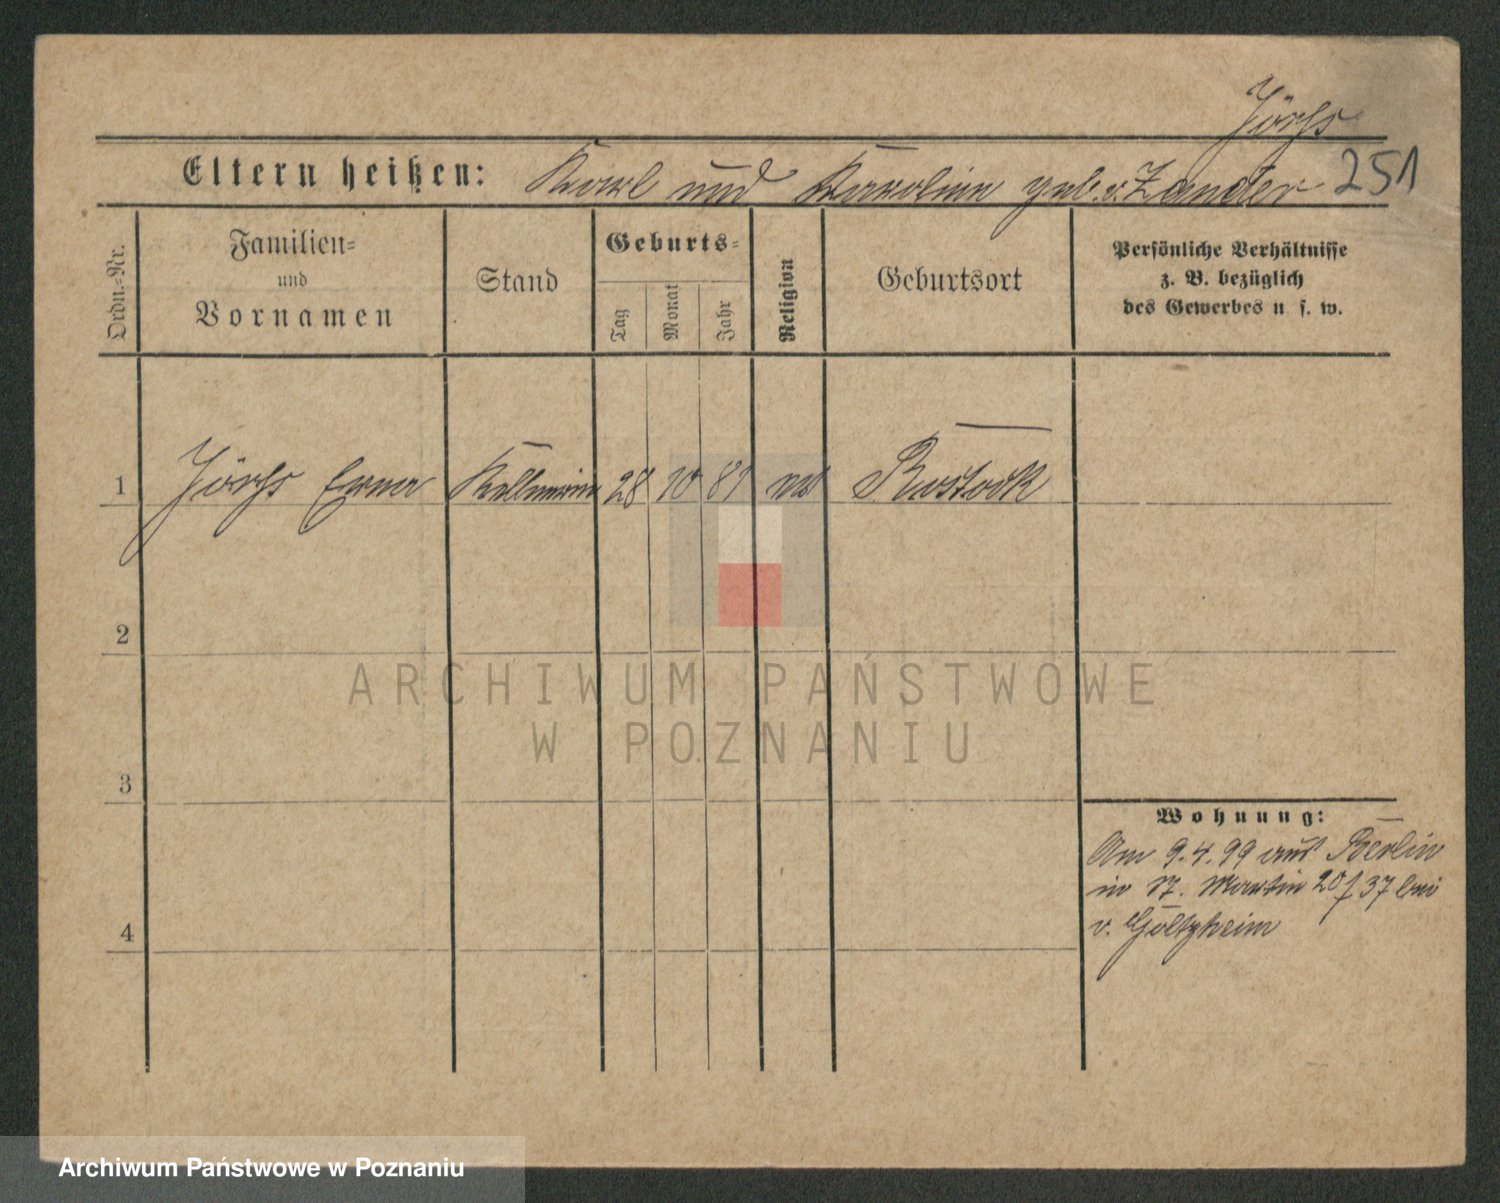 Jörss
251
Eltern heißen: Karl und Karoline geb. v. Zander
Ordn.-Nr.
Familien-
und
Vornamen
Stand
Geburts-
Tag
Monat
Jahr
Religion
Geburtsort
Persönliche Verhältnisse
z. B. bezüglich
des Gewerbes u. s. w.
1 Jörss Erna Kellnerin 28 10 81 ev Rostock
2
3
4
Wohnung:
Am 9.4.99 aus Berlin
in St. Martin 20/37 bei
v. Goltzheim
ARCHIWUM PAŃSTWOWE
W POZNANIU
Archiwum Państwowe w Poznaniu